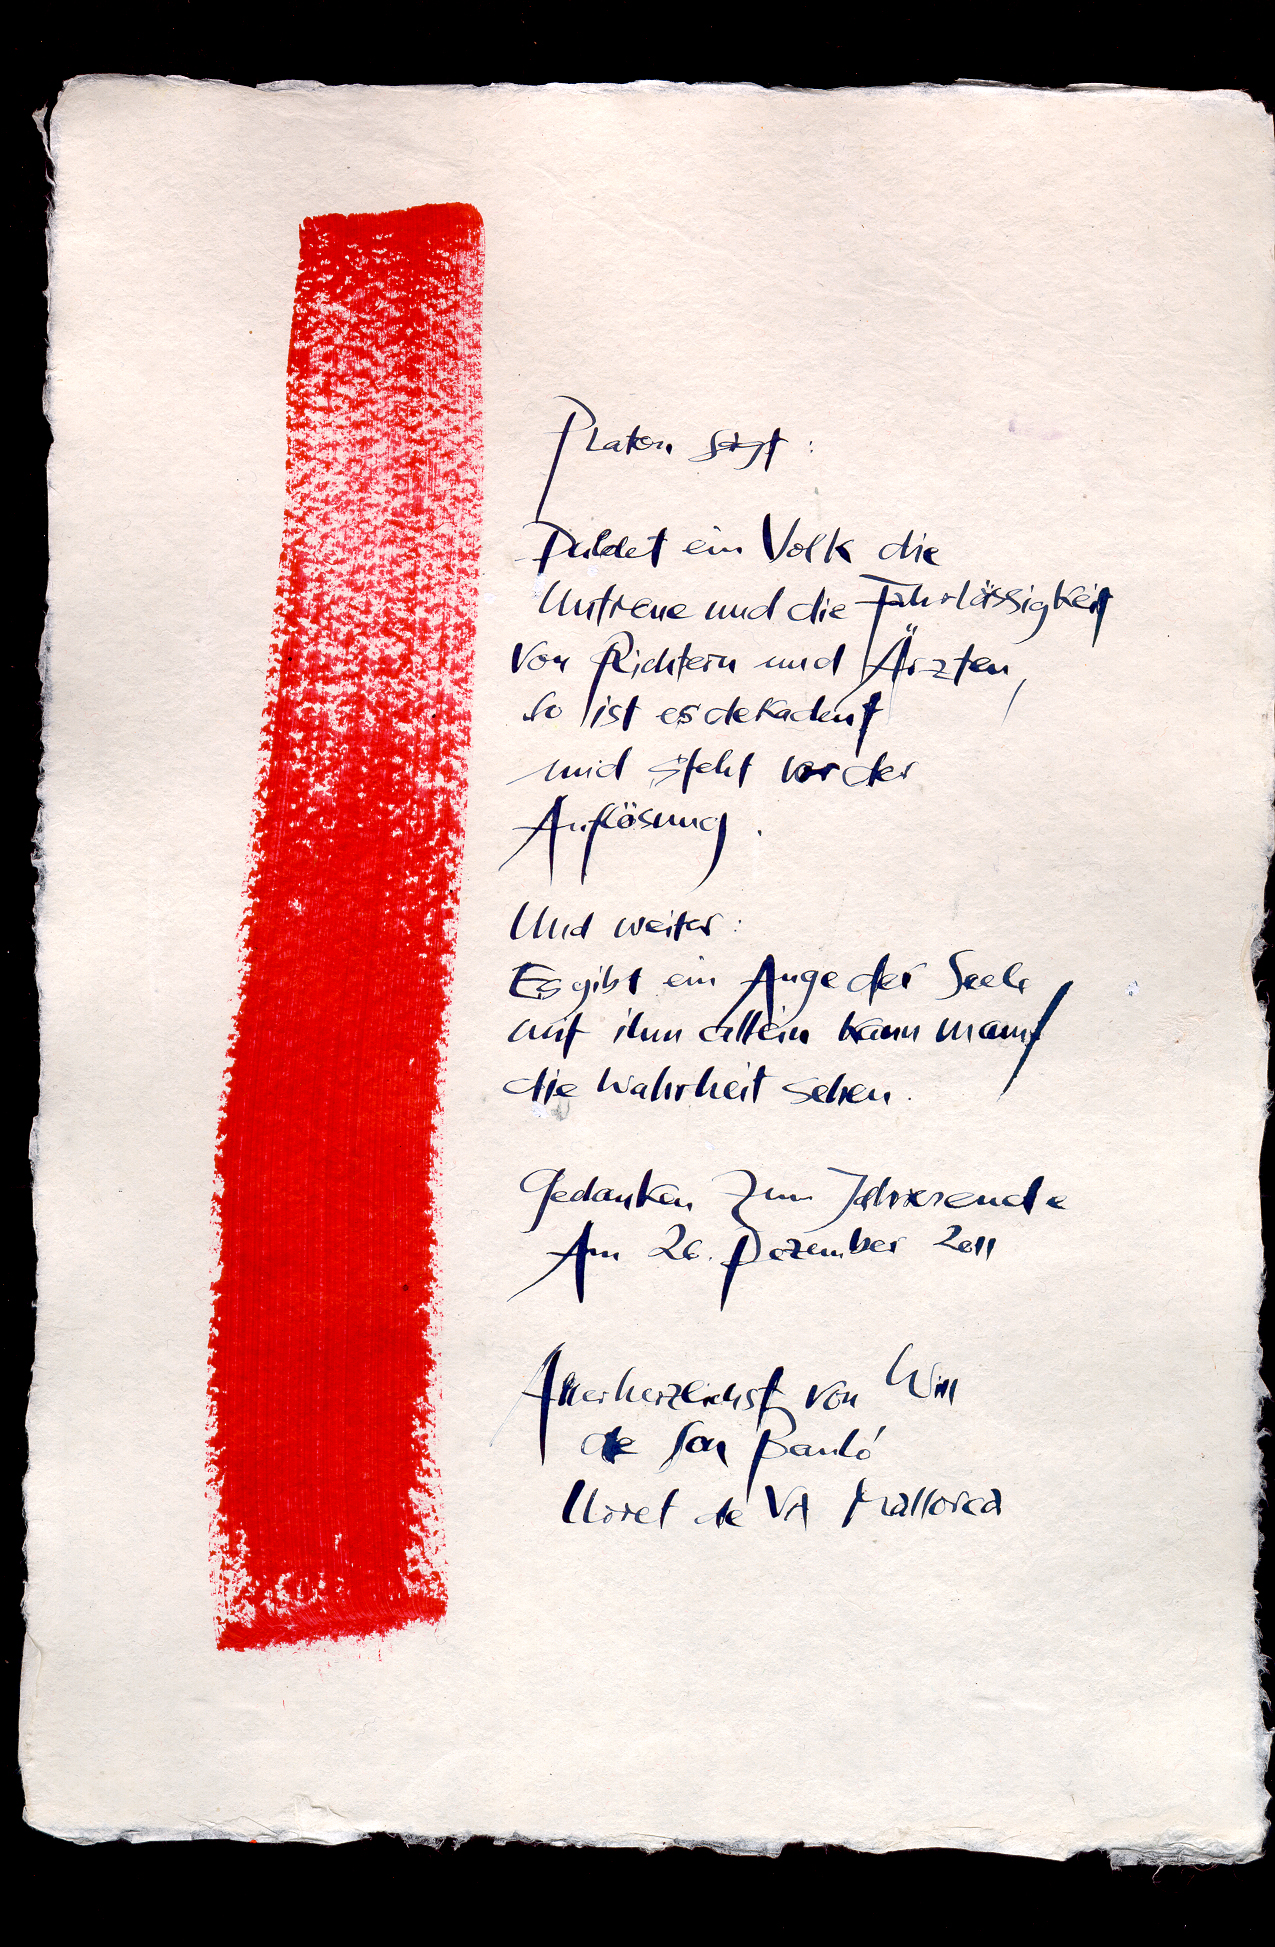 Platon sagt:
Duldet ein Volk die
Untreue und die Fahrlässigkeit
von Richtern und Ärzten,
so ist es dekadent
und steht vor der
Auflösung.
Und weiter:
Es gibt ein Auge der Seele
mit ihm allein kann man
die Wahrheit sehen.
Gedanken zum Jahresende
Am 26. Dezember 2011
Allerherzlichst von Will
de Son Bauló
Lloret de VA Mallorca